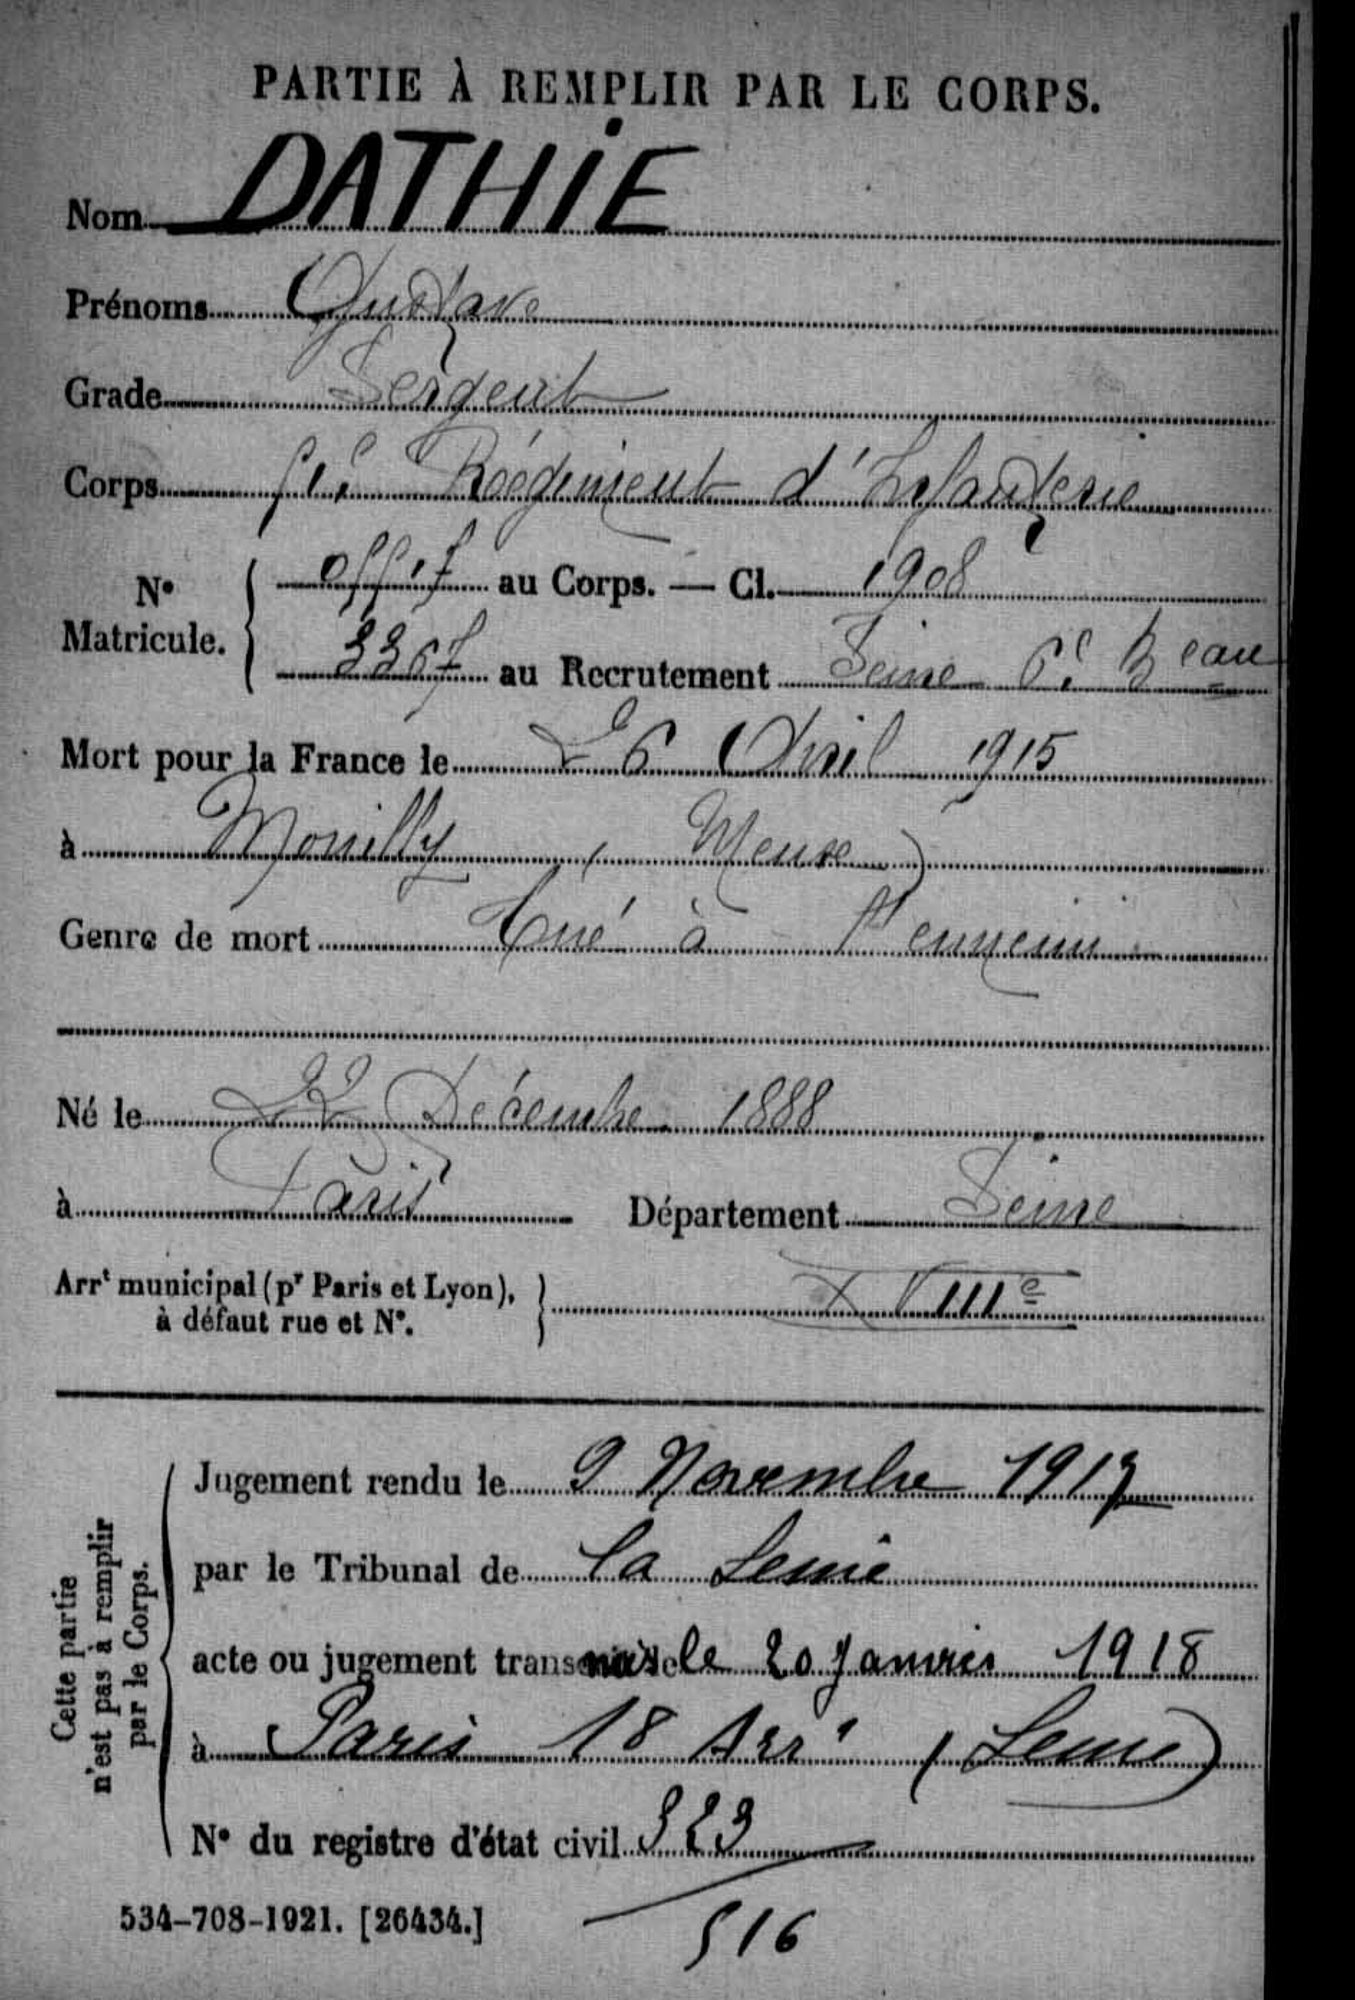 PARTIE À REMPLIR PAR LE CORPS.
Nom DATHIE
Prénoms Gustave
Grade Sergent
Corps 51e Régiment d'Infanterie
N° Matricule. au Corps. — Cl. 1908
3367 au Recrutement Seine 6e Beau
Mort pour la France le 26 Avril 1915
à Mouilly (Meuse)
Genre de mort Tué à l'ennemi
Né le 22 Décembre 1888
à Paris Département Seine
Arrt municipal (pr Paris et Lyon), à défaut rue et N°. XVIIIe
Cette partie n'est pas à remplir par le Corps.
Jugement rendu le 9 Novembre 1917
par le Tribunal de la Seine
acte ou jugement transcrit le 20 Janvier 1918
à Paris 18 Arrt (Seine)
N° du registre d'état civil 323
534-708-1921. [26434.]
516